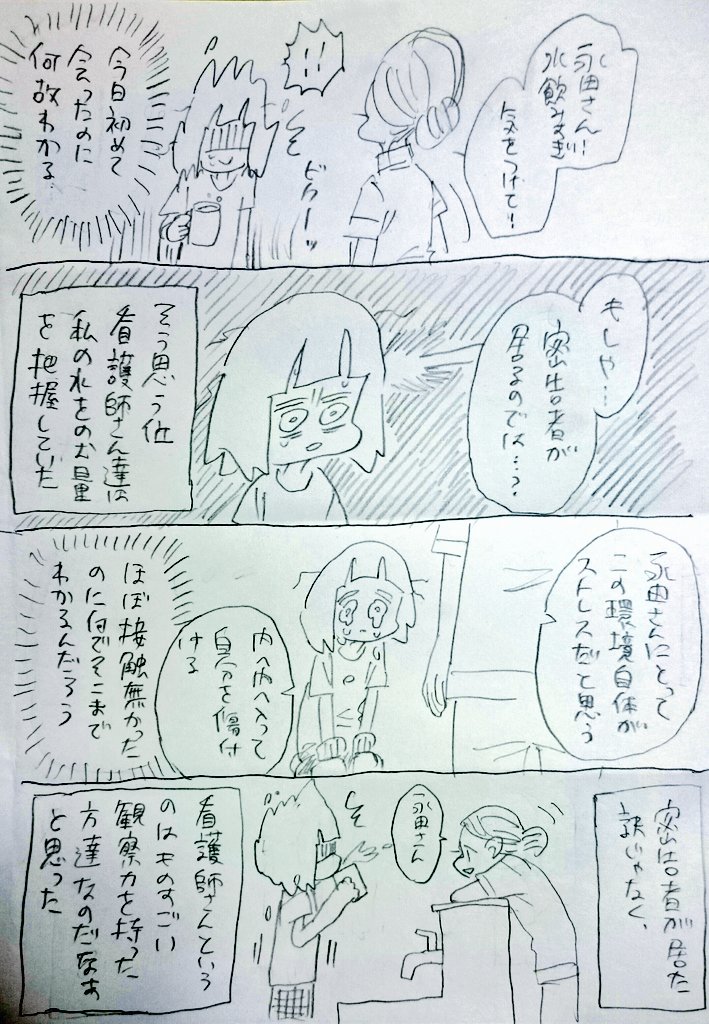 永田さん!
水飲みすぎ
気をつけて!
!!
ビクーッ
今日初めて
会ったのに
何故わかる
もしや…
密告者が
居るのでは…?
そう思う位
看護師さん達は
私の水をのむ量
を把握していた
永田さんにとって
この環境自体が
ストレスだと思う
内へ内へ入って
自分を傷付
ける
ほぼ接触無かった
のに何でそこまで
わかるんだろう
密告者が居た
訳じゃなく、
永田さん
看護師さんという
のはものすごい
観察力を持った
方達なのだなぁ
と思った